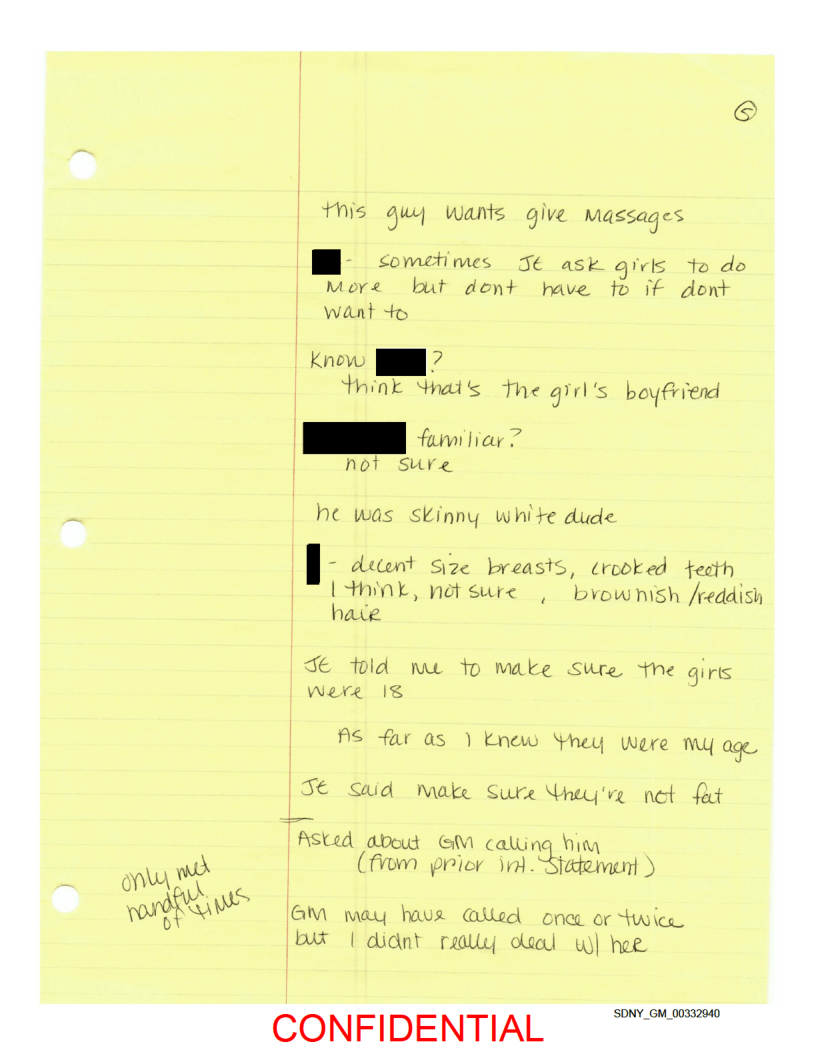 5
this guy wants give massages
- sometimes JE ask girls to do
more but dont have to if dont
want to
Know ?
think that's the girl's boyfriend
familiar?
not sure
he was skinny white dude
- decent size breasts, crooked teeth
I think, not sure, brownish/reddish
hair
JE told me to make sure the girls
were 18
As far as I knew they were my age
JE said make sure they're not fat
Asked about GM calling him
(from prior int. statement)
only met
handful
of times
GM may have called once or twice
but I didnt really deal w/ her
SDNY_GM_00332940
CONFIDENTIAL